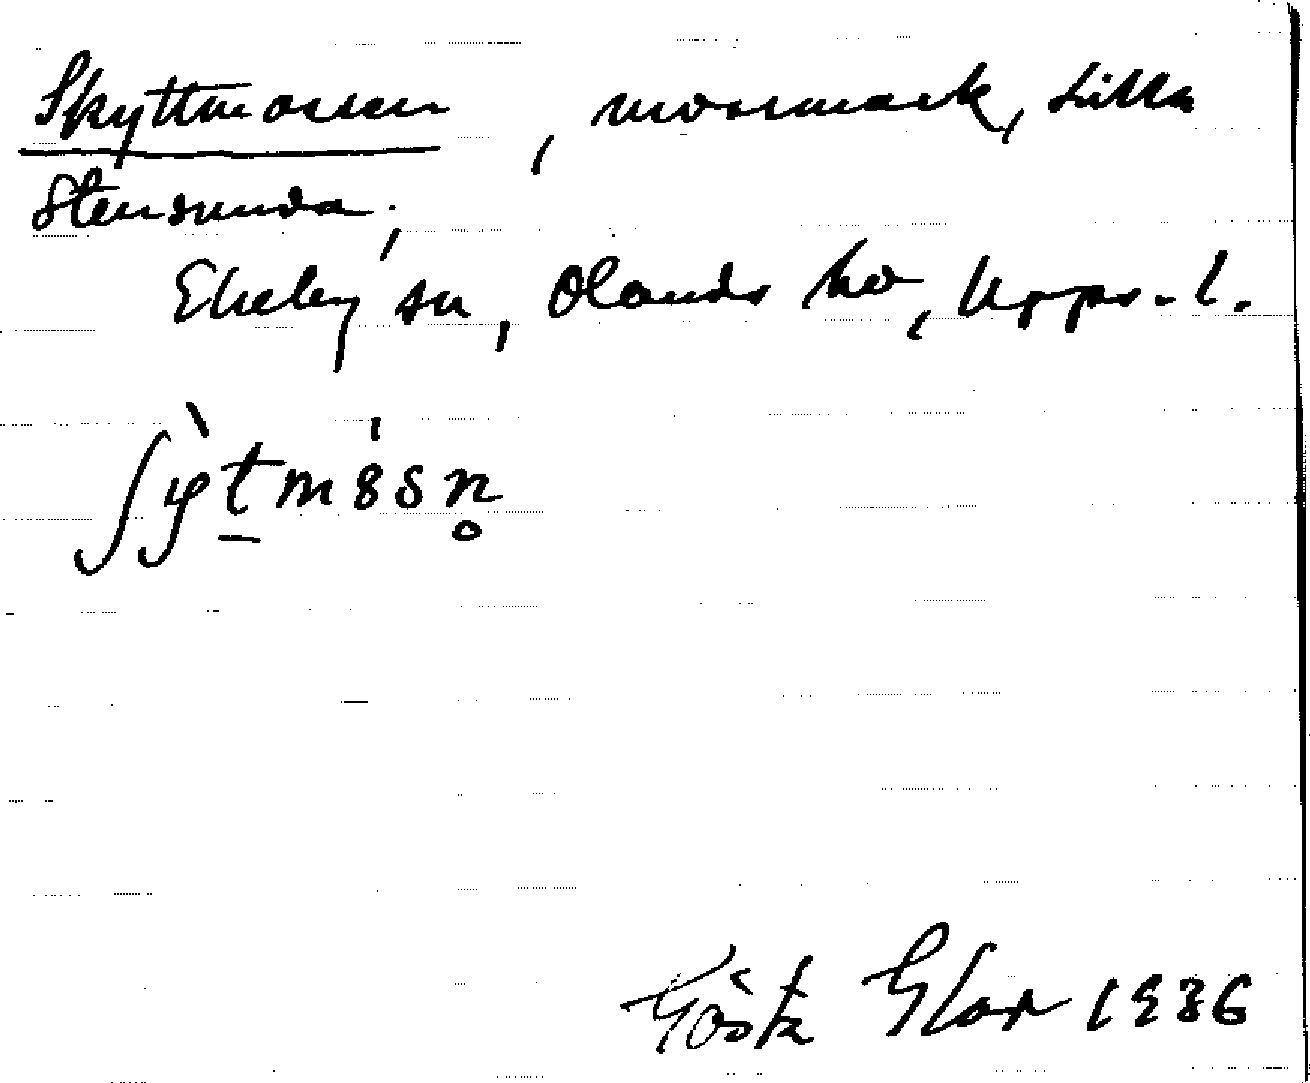 Skyttmossen, mossmark, Lilla
Stensunda,
Ekeby sn, Olands hd, Upps. l.
Gösta Elar 1936